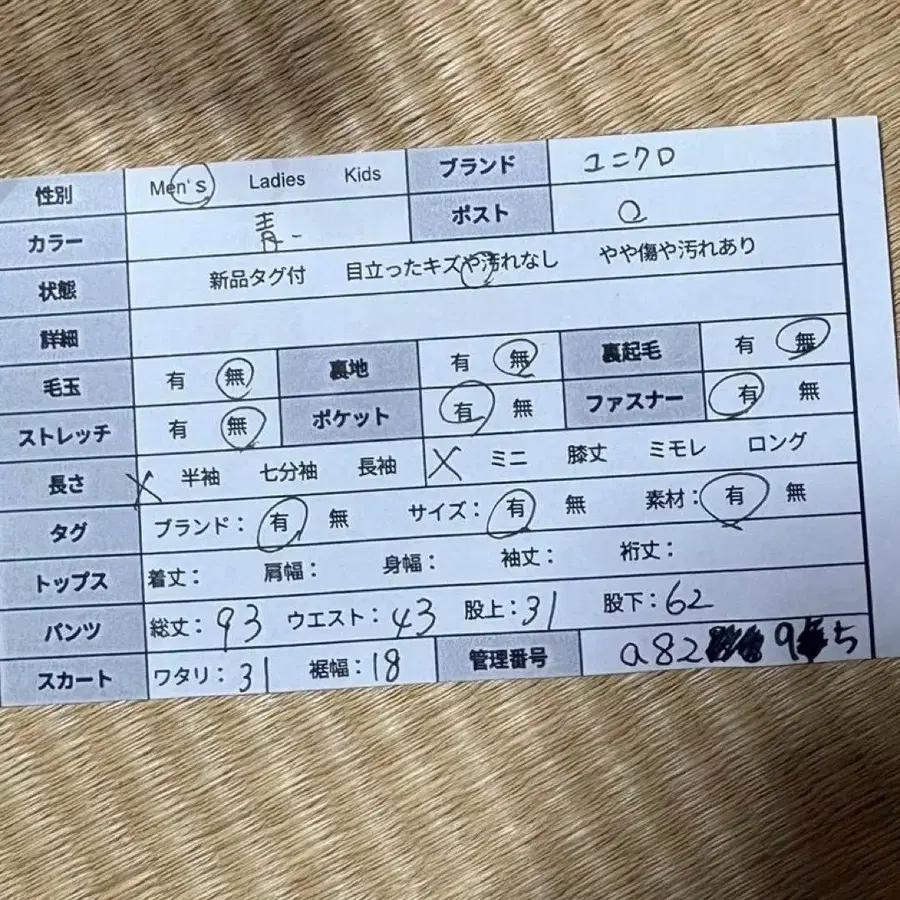 性別 Men's Ladies Kids ブランド ユニクロ
カラー 青 ポスト ○
状態 新品タグ付 目立ったキズや汚れなし やや傷や汚れあり
詳細
毛玉 有 無 裏地 有 無 裏起毛 有 無
ストレッチ 有 無 ポケット 有 無 ファスナー 有 無
長さ 半袖 七分袖 長袖 ミニ 膝丈 ミモレ ロング
タグ ブランド: 有 無 サイズ: 有 無 素材: 有 無
トップス 着丈: 肩幅: 身幅: 袖丈: 裄丈:
パンツ 総丈: 93 ウエスト: 43 股上: 31 股下: 62
スカート ワタリ: 31 裾幅: 18 管理番号 a82 9 5